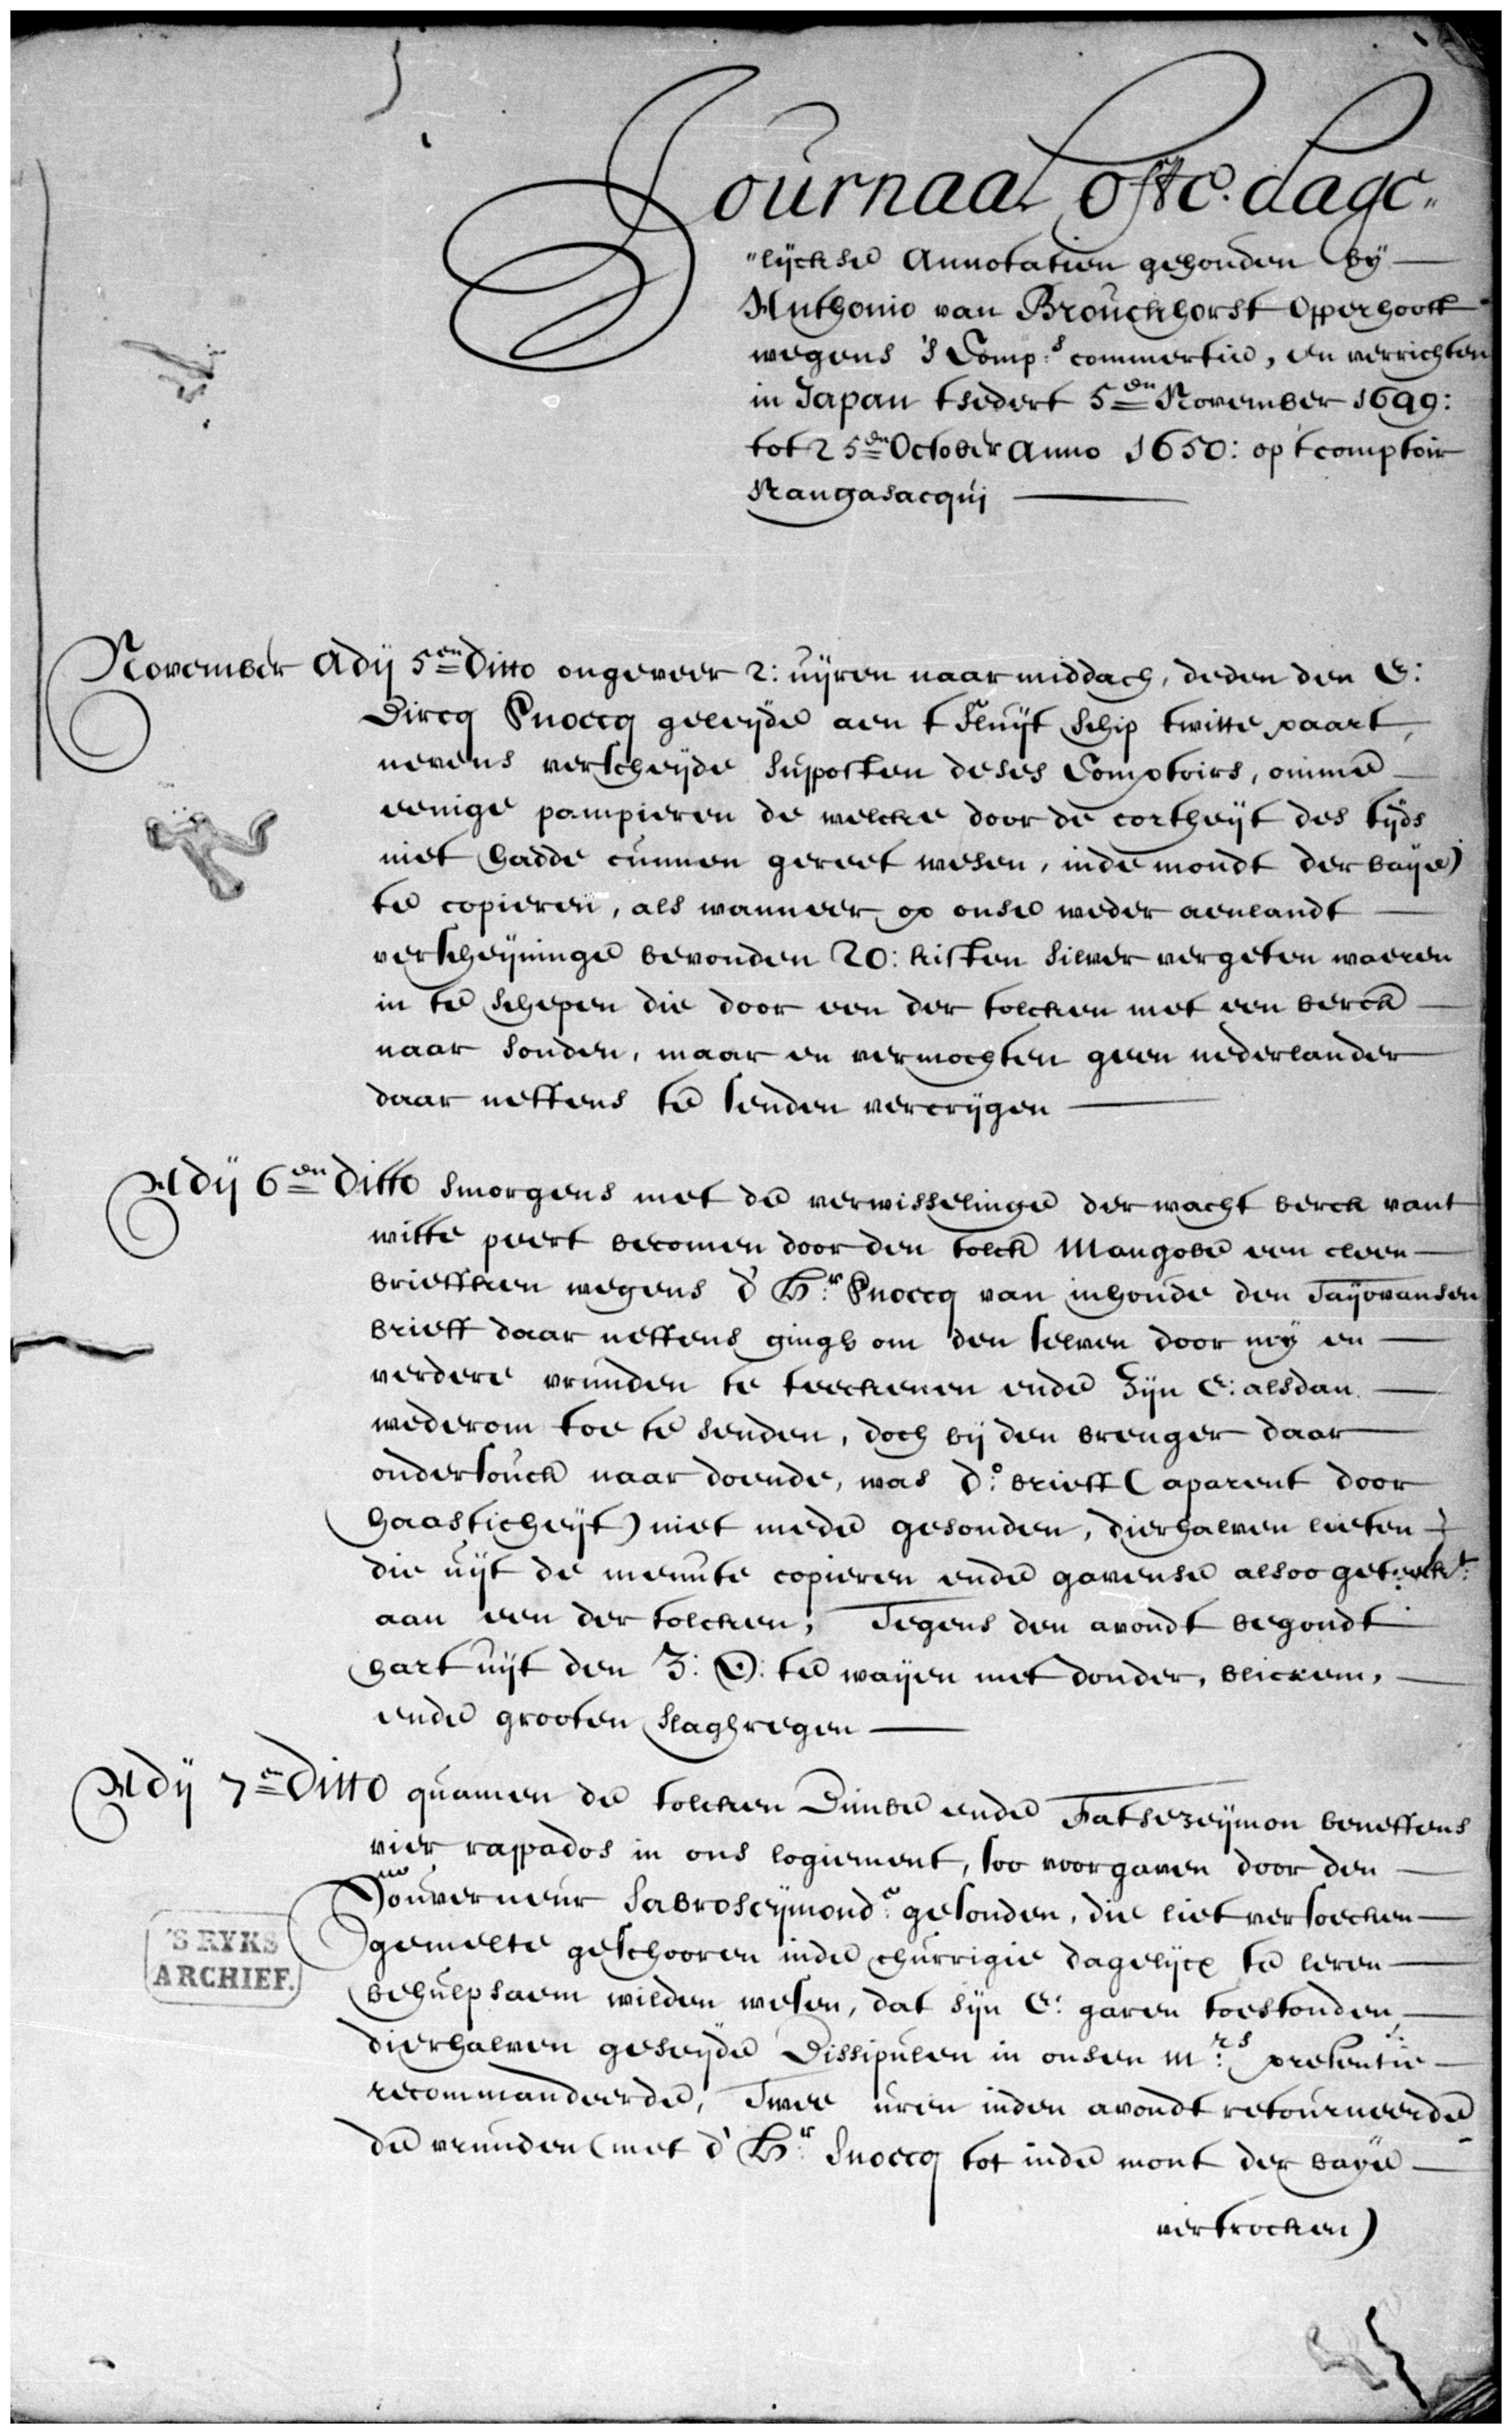 Journaal ofte dage„
„lijckse Annotatien gehouden bij
Anthonio van Brouckhorst Opperhooft
wegens 's Comp:s commertie, en verrichten
in Japan tsedert 5en November 1649:
tot 25en October Anno 1650: op 't comptoir
Nangasacquij
November Adij 5en Ditto ongeveer 2: uijren naar middach, deden den E:
Dircq Snoecq geleijde aen t fluijt schip twitte paart,
nevens verscheijde supposten deses Comptoirs, omme
eenige pampieren de welcke door de cortheijt des tijds
niet hadde cunnen gereet wesen, inde mondt der baije
te copieren, als wanneer op onse weder aenlandt
verscheijninge bevonden 20: kisten silver vergeten waeren
in te schepen die door een der tolcken met een berck
naar sonden, maar en vermochten geen nederlander
daar neffens te senden vercrijgen
Adij 6en Ditto smorgens met de verwisselinge der wacht berck vant
witte peert becomen door den tolck Mangobe een cleen
brieffken wegens d' Hr: Snoecq van inhoude den Taijovansen
brieff daar neffens gingh om den selven door mij en
verdere vrunden te teeckenen ende Zijn E: alsdan
wederom toe te senden, doch bij den brenger daar
ondersouck naar doende, was do: brieff (aparent door
haasticheijt) niet mede gesonden, dierhalven lieten
die uijt de menute copieren ende gavense alsoo geteekt:
aan een der tolcken; Tegens den avondt begondt
hart uijt den Z: O: te waijen met donder, blicxem,
ende grooten slaghregen
Adij 7en Ditto quamen de tolcken Dimbe ende Fatsezeijmon beneffens
vier rappados in ons logiement, soo voorgaven door den
Gouverneur Sabroseijmonde: gesonden, die liet versoecken
gemelte geschooren inde churrigie dagelijcx te leren
behulpsaem wilden wesen, dat sijn E: garen toestonden,
dierhalven geseijde Dissipulen in onsen Mrs: presentie
recommandeerde, Twee uren inden avondt retourneerde
de vrunden (met d' Hr: Snoecq tot inde mont der baije
vertrocken)
'S RYKS
ARCHIEF.